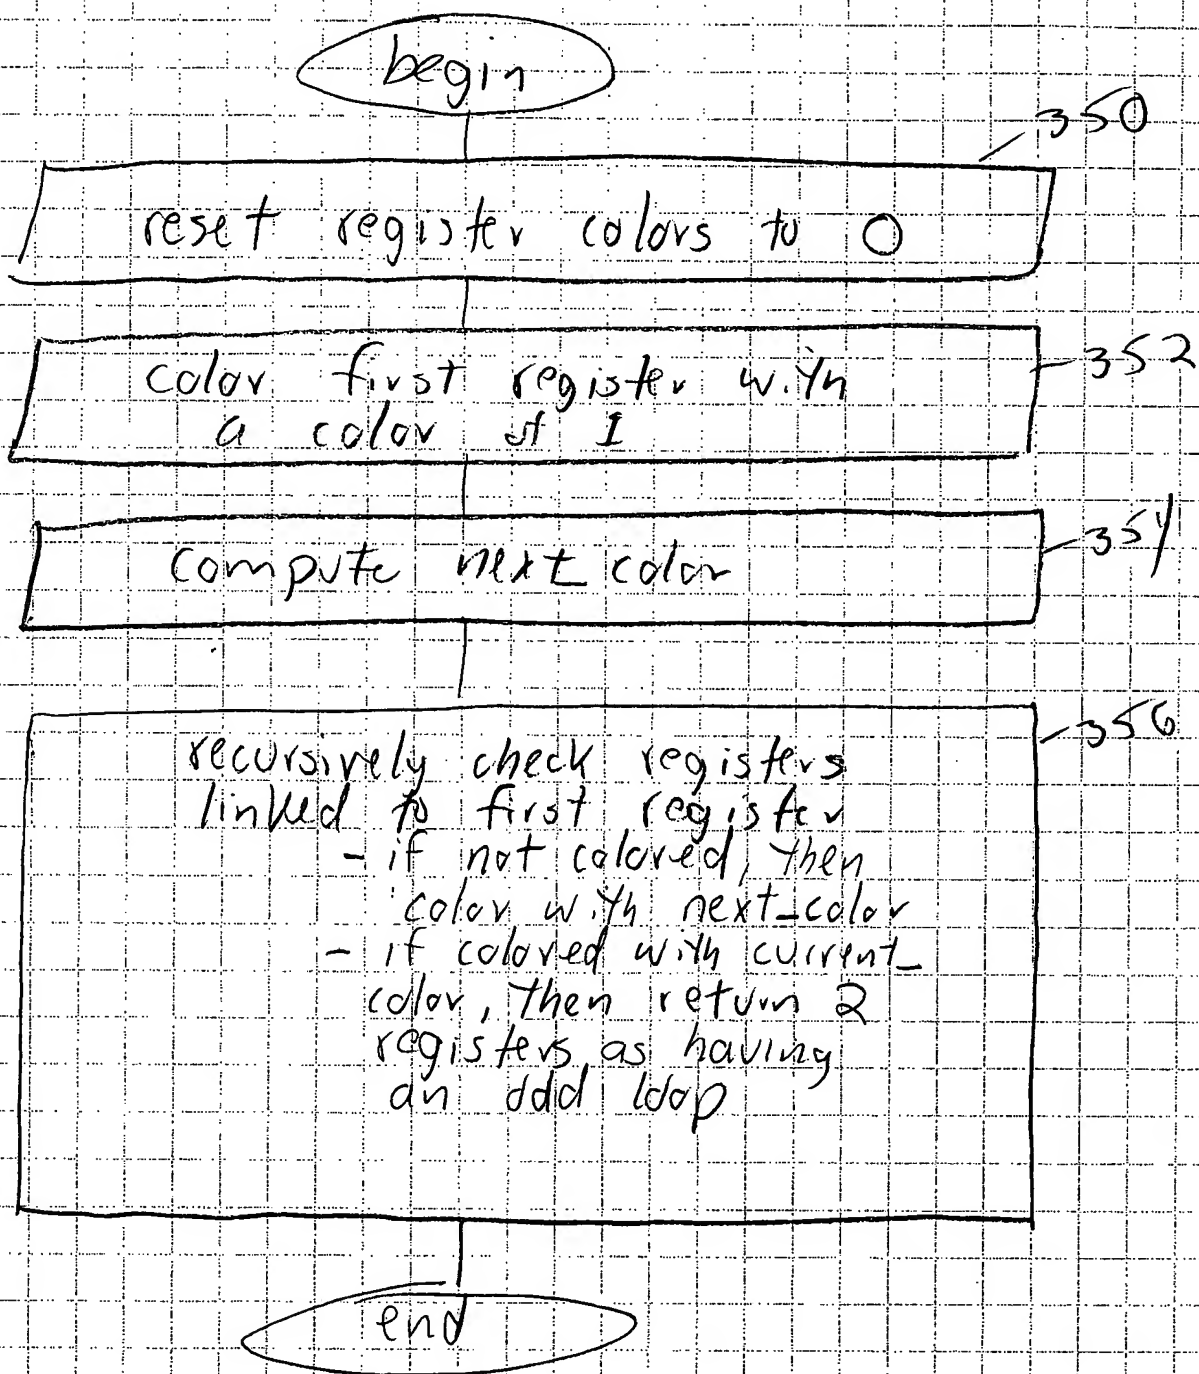 begin
350
reset register colors to 0
color first register with
a color of 1
352
compute next_color
354
recursively check registers
linked to first register
- if not colored, then
color with next_color
- if colored with current_
color, then return 2
registers as having
an odd loop
356
end